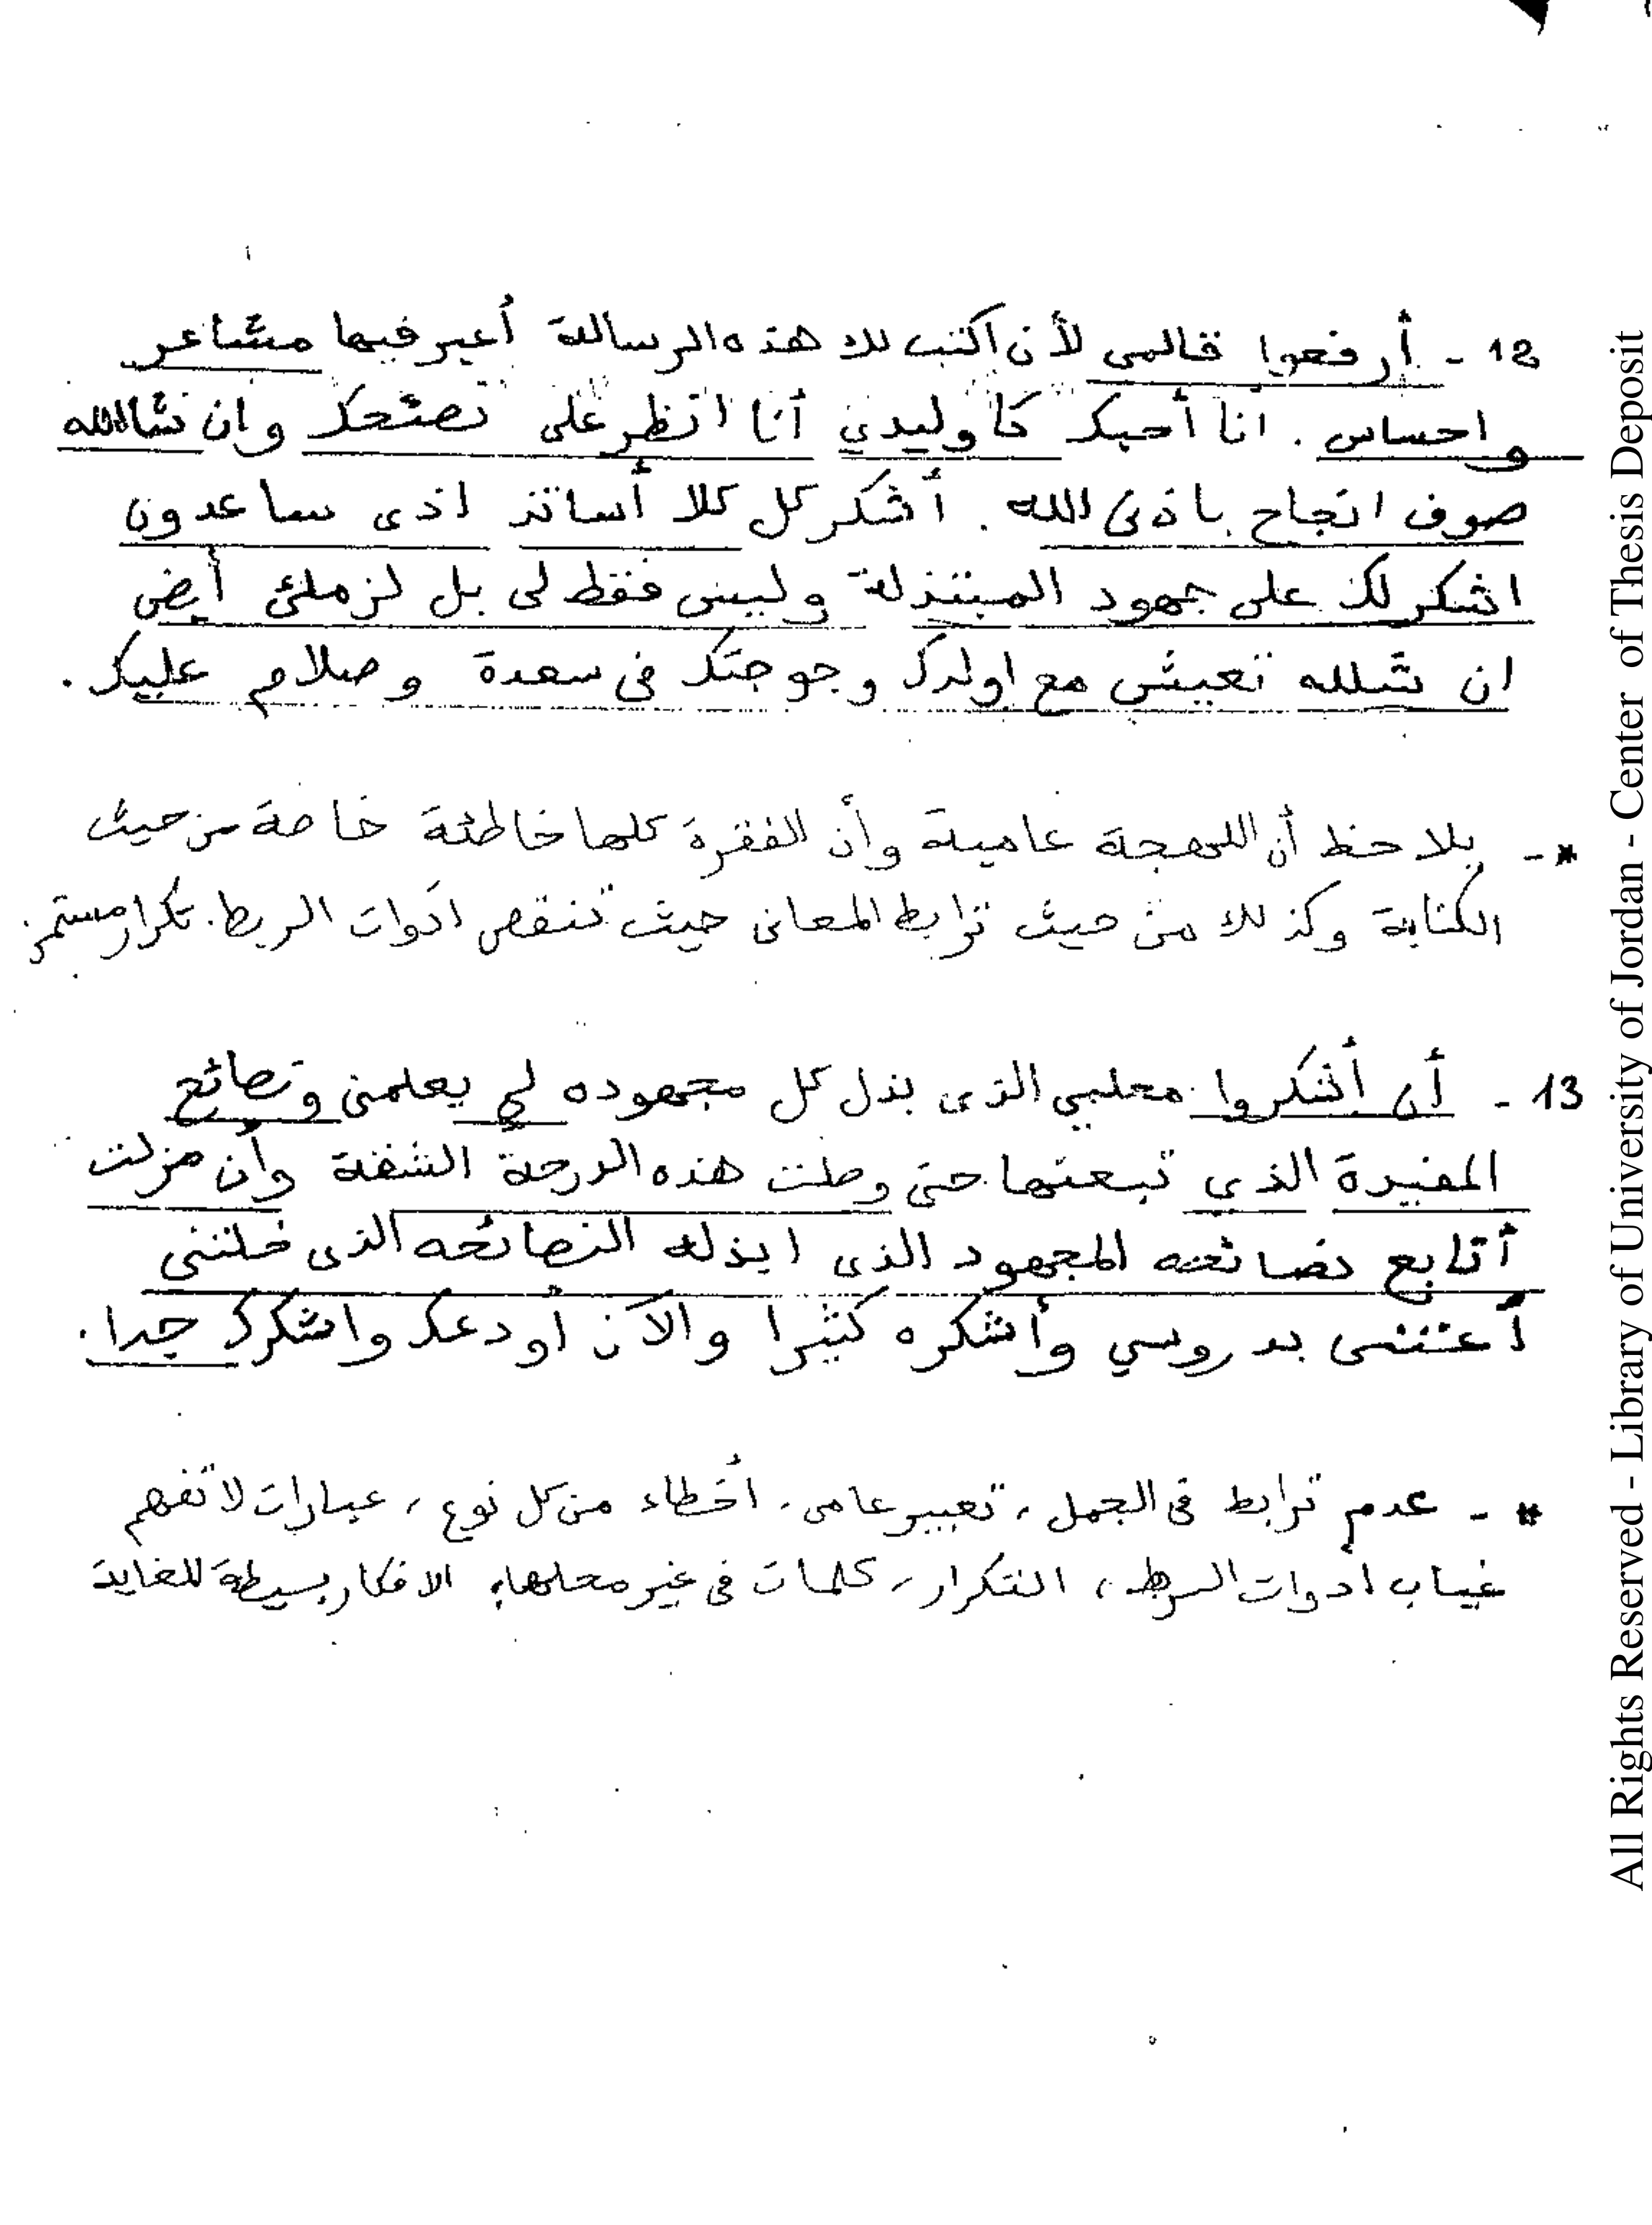 12 - أرفعوا قالمى لأن اكتب لك هذه الرسالة أعبر فيها مشاعر
واحساس . انا أحبك كا وليدي أنا انظر على نصتحك وان شاالله
صوف انجاح باذن الله . أشكر كل كلا أساتذ اذى ساعدون
اشكر لك على جمهود المبتذلة وليس فقط لى بل لزملئ أيض
ان شلله تعيش مع اولدك وجوجتك فى سعدة وصلام عليك .
*- يلاحظ أن اللهجة عامية وأن الفقرة كلها خاطئة خاصة من حيث
الكتابة وكذلك من حيث ترابط المعانى حيث تنقص ادوات الربط . تكرار مستمر
13 - أن أشكروا معلمي الذى بذل كل مجهوده لي يعلمنى ونصائح
المفيدة الذي تبعتها حتى وصلت هذه الدرجة الشفة وأن مزلت
أتابع نصائحه المجهود الذى ابذله النصائحه الذى خلتنى
أعتنى بدروسي وأشكره كثيرا والآن أودعك واشكرك جدا .
* - عدم ترابط فى الجمل ، تعبير عامى ، أخطاء من كل نوع ، عبارات لا تفهم
غياب ادوات الربط ، التكرار ، كلمات فى غير محلها ، الافكار بسيطة للغاية
All Rights Reserved - Library of University of Jordan - Center of Thesis Deposit